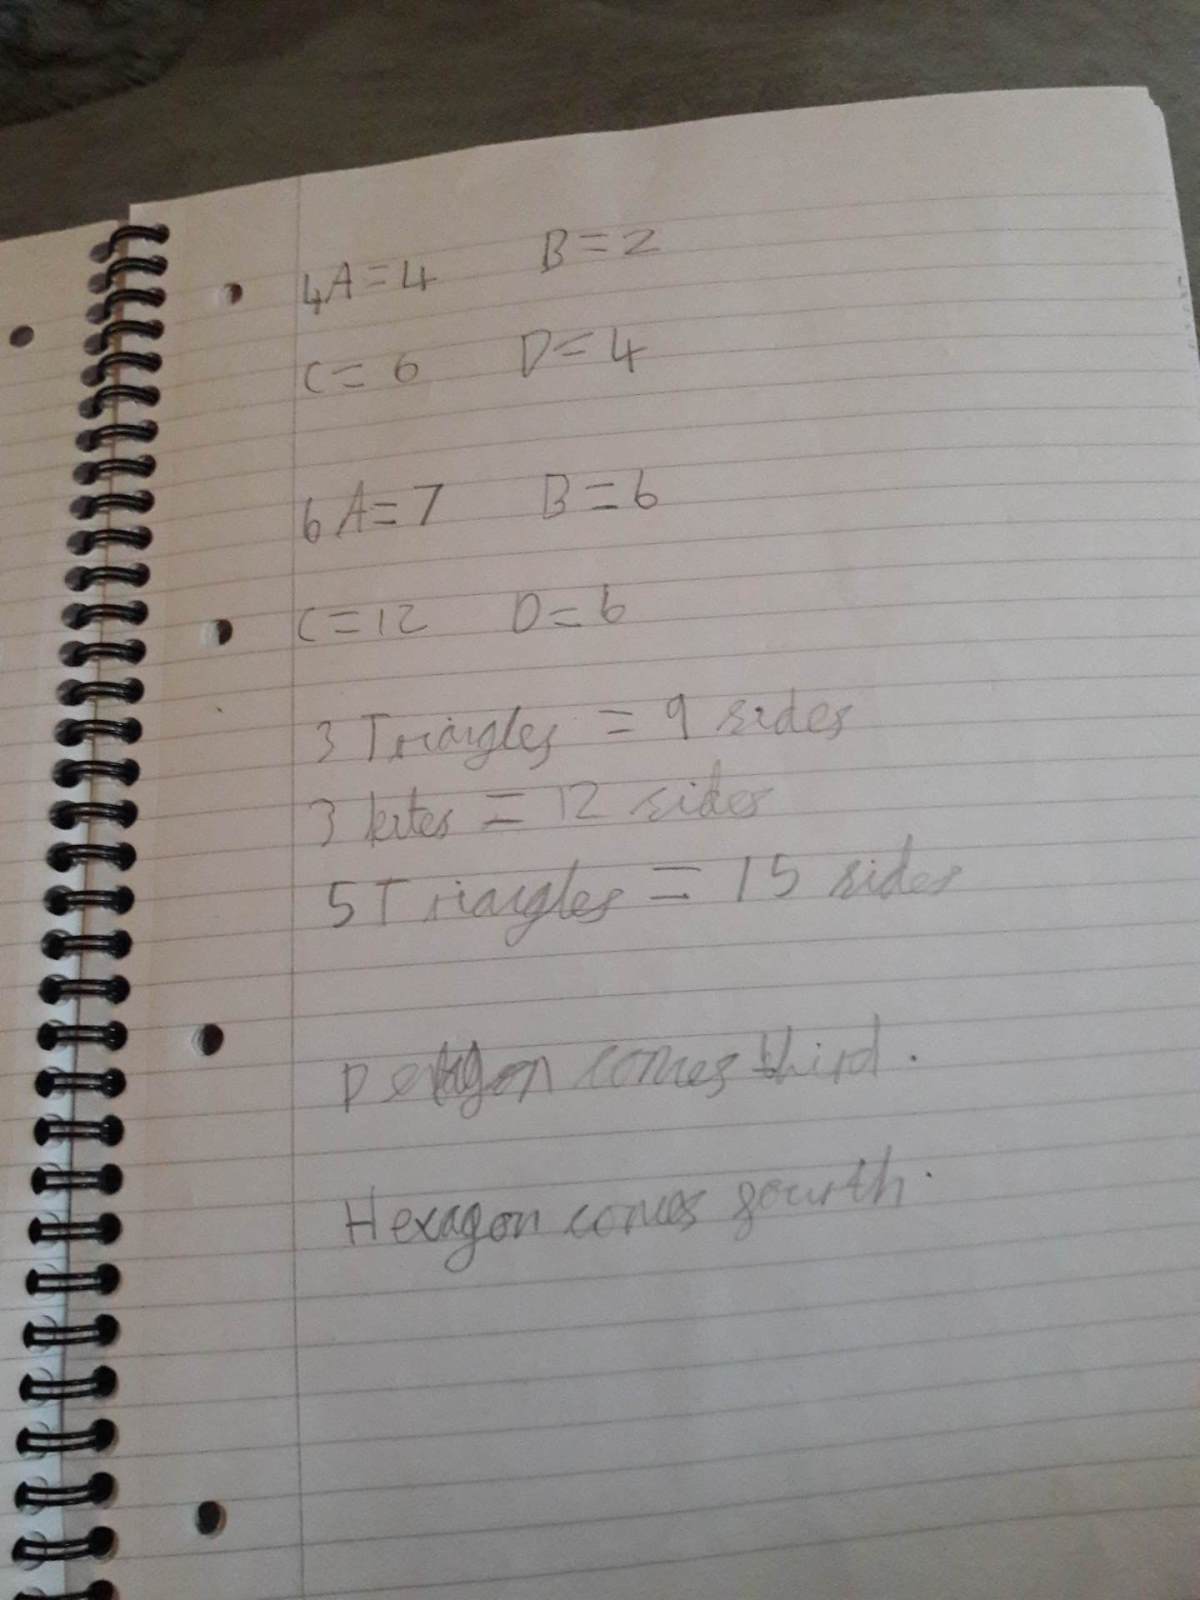 4A=4 B=2
C=6 D=4
6A=7 B=6
C=12 D=6
3 Triangles = 9 sides
3 kites = 12 sides
5 Triangles = 15 sides
Pentagon comes third.
Hexagon comes fourth.